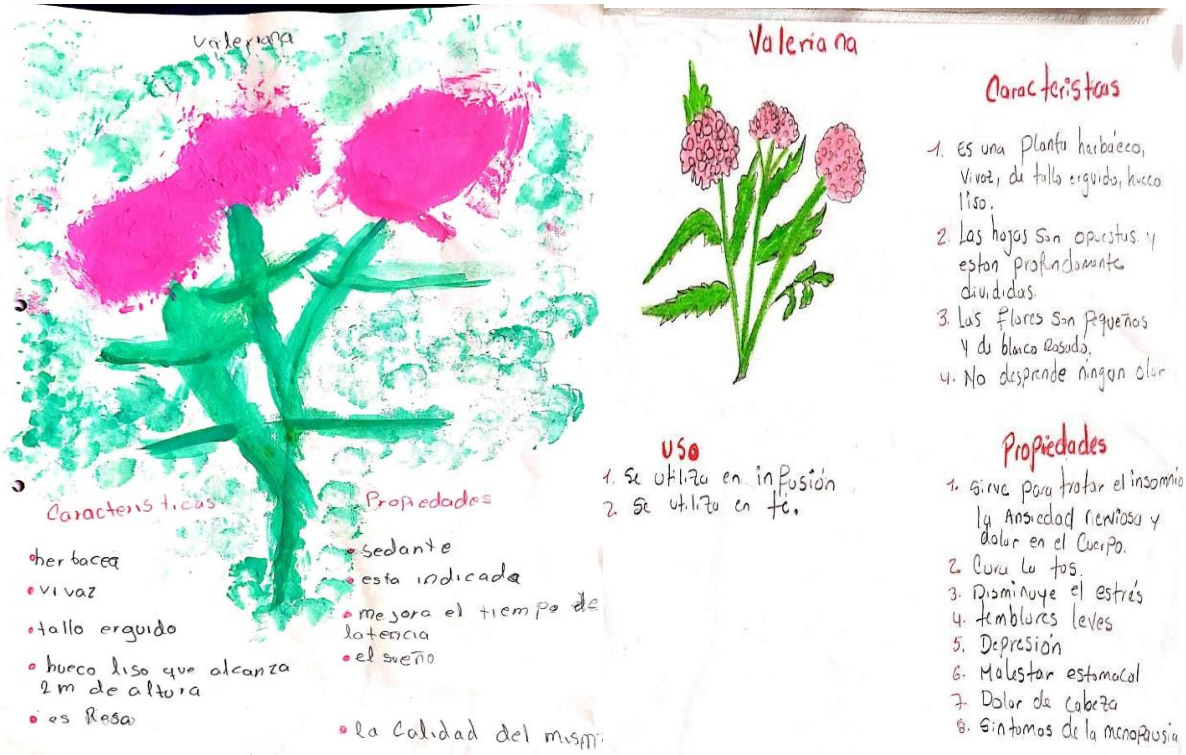 Valeriana
Caracteristicas
herbacea
vivaz
tallo erguido
hueco liso que alcanza
2m de altura
es Resa
Propiedades
sedante
esta indicada
mejora el tiempo de
latencia
el sueño
la Calidad del mism
Valeriana
Caracteristicas
1. Es una planta harbáeco,
vivaz, de tallo erguido, hueco
liso.
2. Las hojas son opuestas y
estan profundamente
divididas.
3. Las flores son pequeños
y de blanco Rosado.
4. No desprende ningun olor
USO
1. Se utiliza en infusión
2. Se utiliza en té.
Propiedades
1. Sirve para tratar el insomnio
la Ansiedad nerviosa y
dolor en el Cuerpo.
2. Cura la tos.
3. Disminuye el estrés
4. temblores leves
5. Depresión
6. Malestar estomacal
7. Dolor de cabeza
8. Sintomas de la menopausia